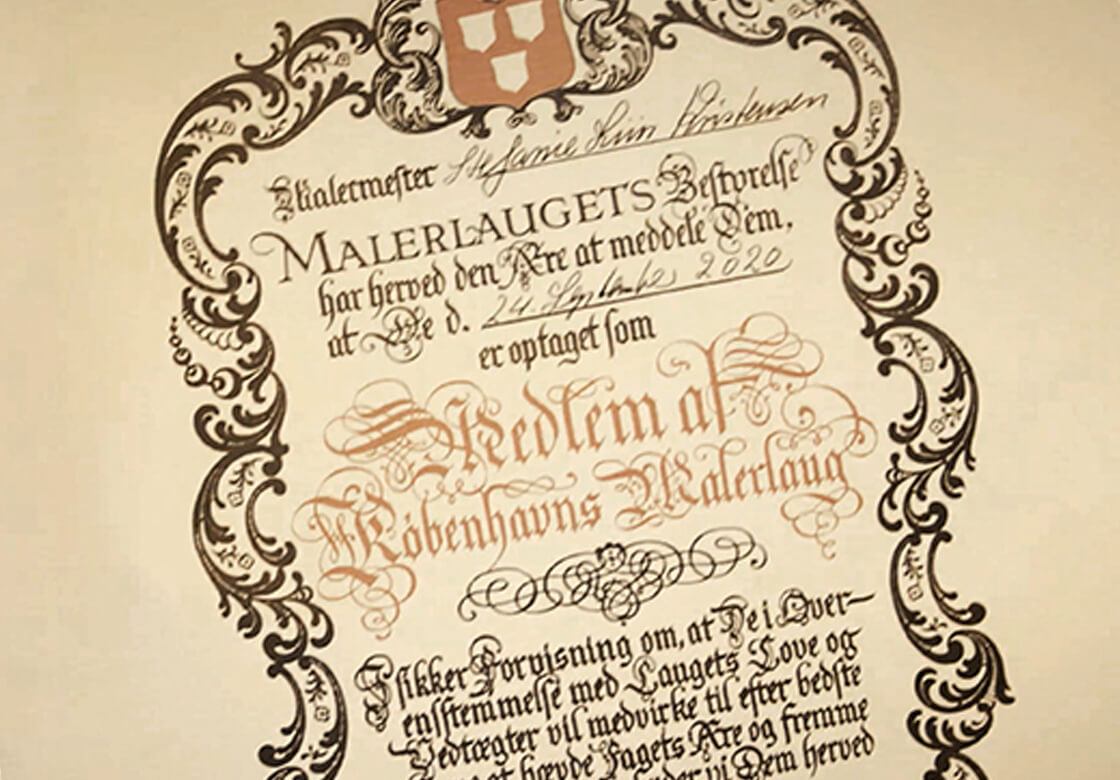 Malermester Stefanie Riin Kristensen
MALERLAUGETS Bestyrelse
har herved den Ære at meddele Dem,
at De d. 24. September 2020
er optaget som
Medlem af
Københavns Malerlaug
I sikker Forvisning om, at De i Over-
ensstemmelse med Laugets Love og
Vedtægter vil medvirke til efter bedste
at hævde Fagets Ære og fremme
vi Dem herved